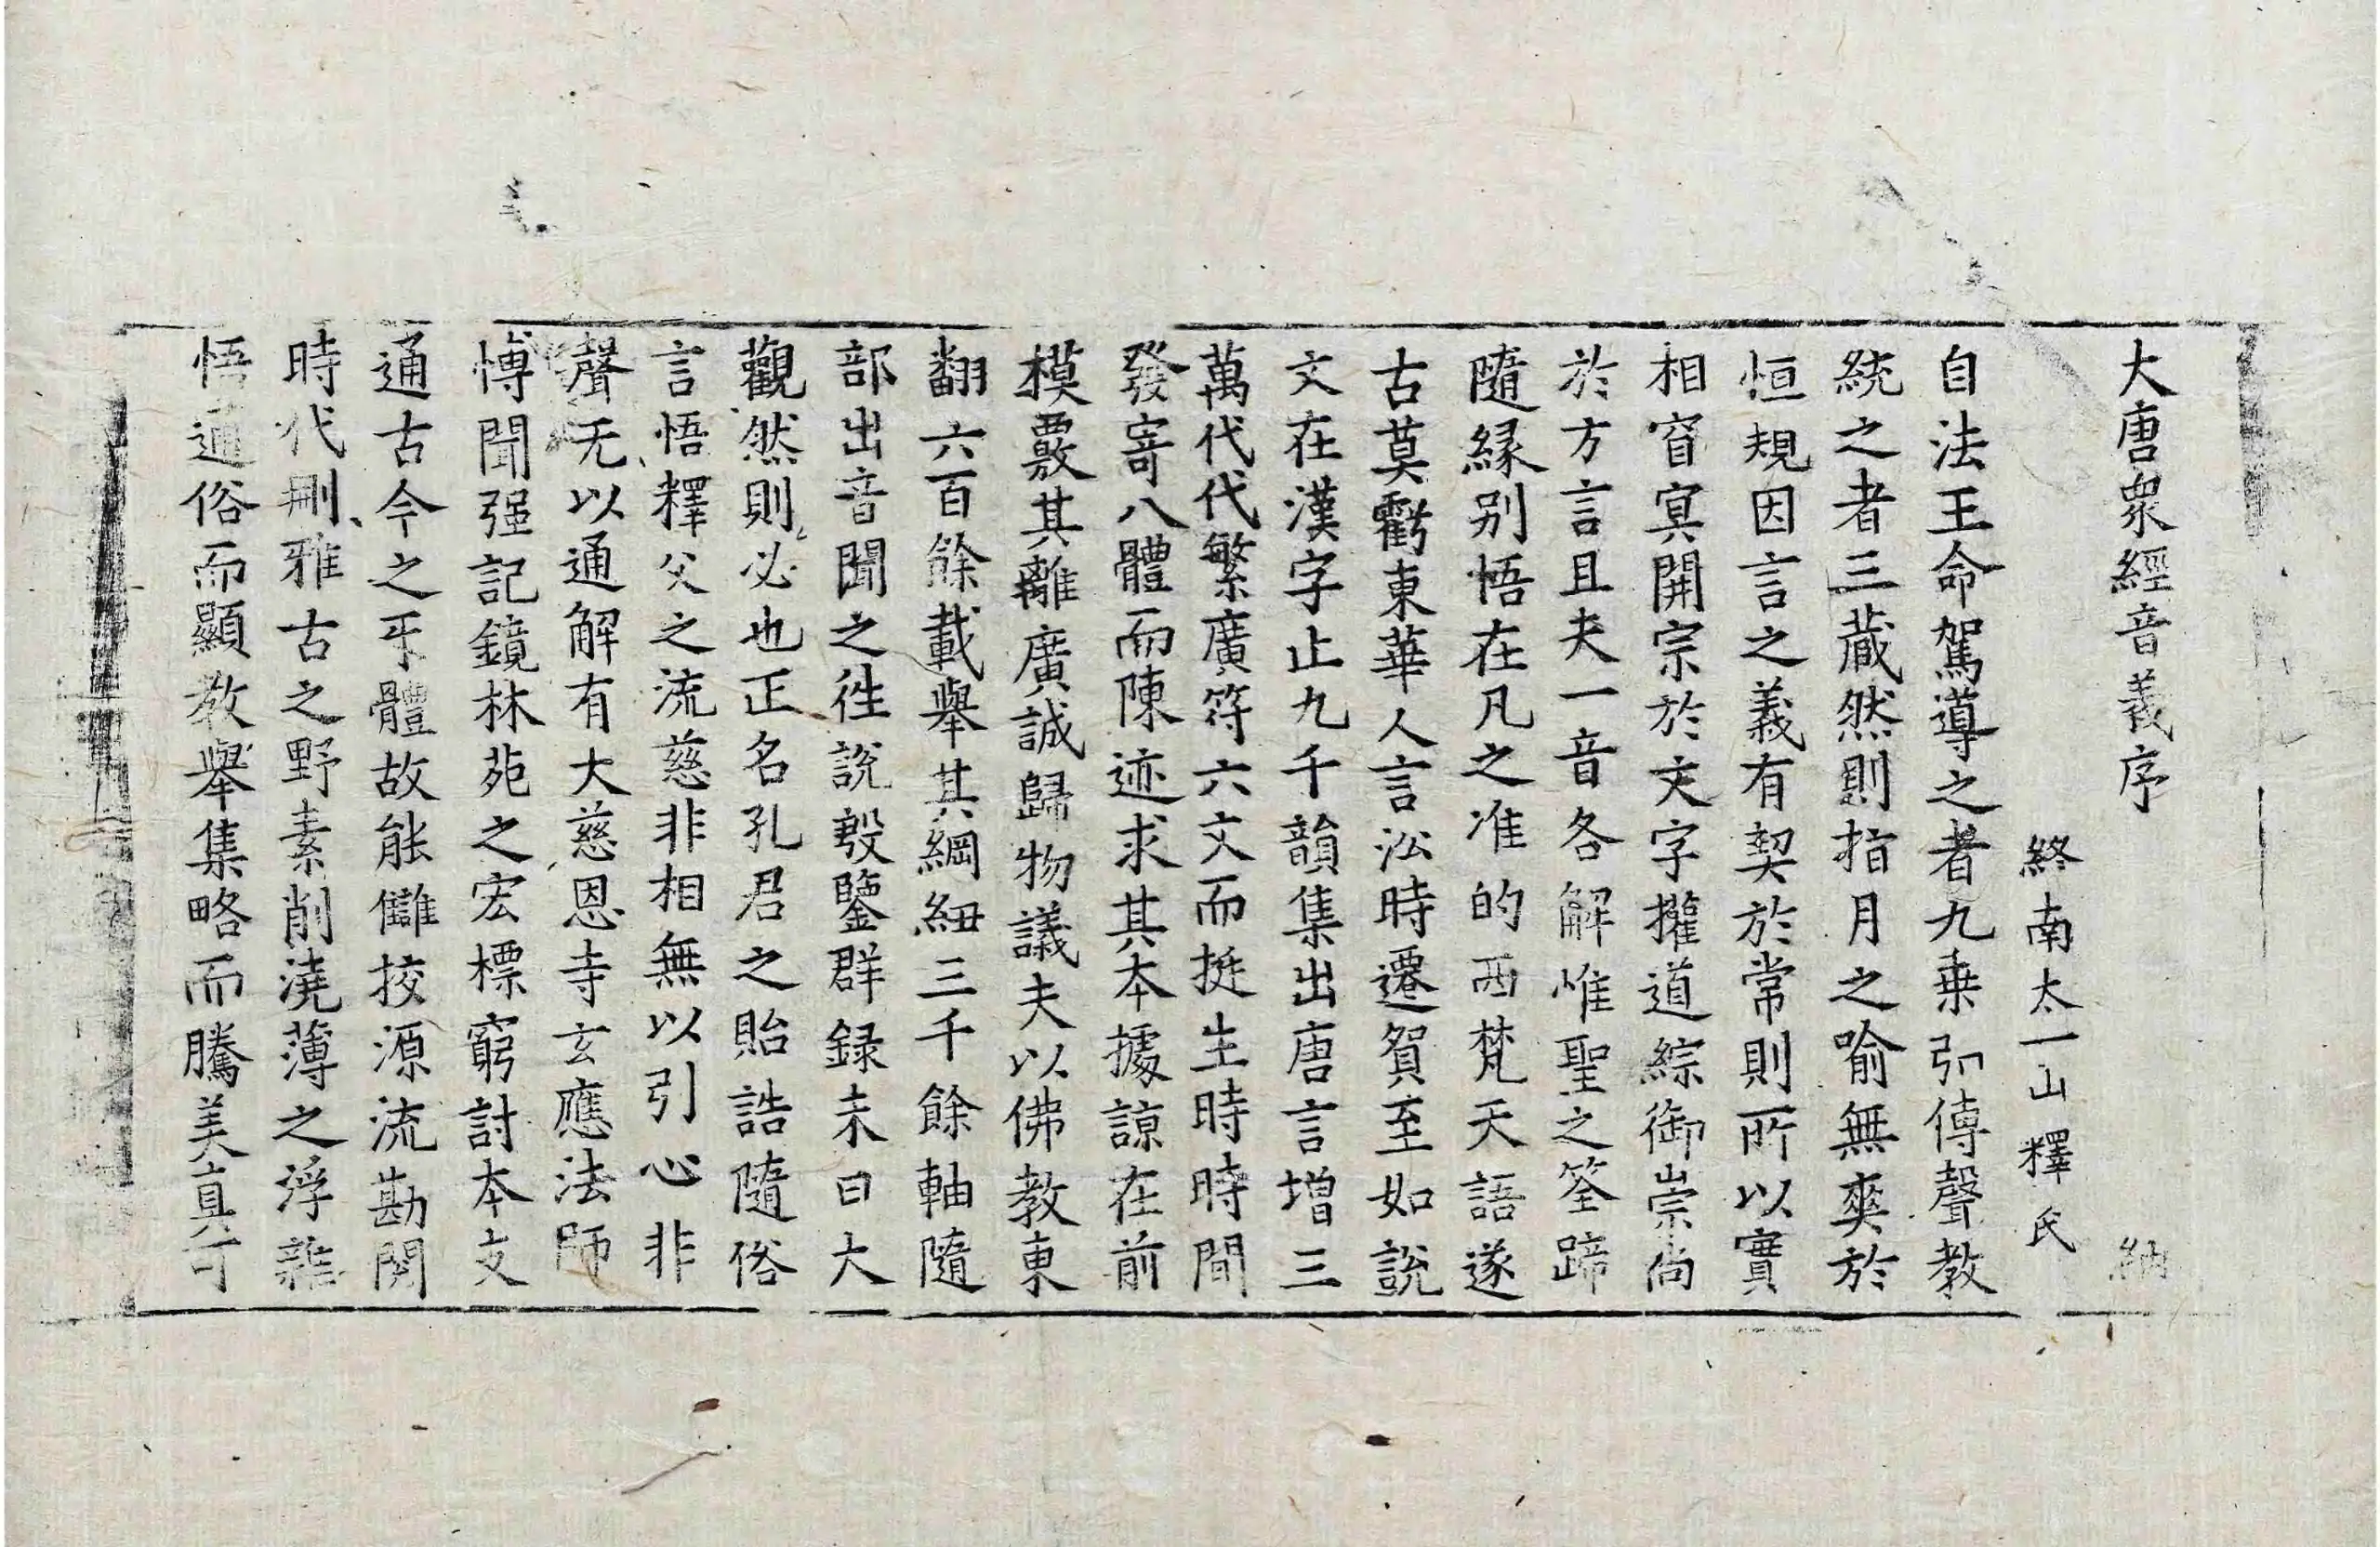 大唐衆經音義序 納
終南太一山釋氏
自法王命駕導之者九乗弘傳聲教
統之者三藏然則指月之喻無爽於
恒規因言之義有契於常則所以實
相窅冥開宗於文字攉道綜御崇尚
於方言且夫一音各解惟聖之筌蹄
隨緣别悟在凡之准的西梵天語遂
古莫虧東華人言訟時遷貿至如説
文在漢字止九千韻集出唐言增三
萬代代繁廣符六文而挺生時時間
發寄八體而陳迹求其本據諒在前
模覈其離廣誠歸物議夫以佛教東
翻六百餘載舉其綱紐三千餘軸隨
部出音聞之徃説殽鑒群録未曰大
觀然則必也正名孔君之貽誥隨俗
言悟釋父之流慈非相無以引心非
聲无以通解有大慈恩寺玄應法師
愽聞强記鏡林苑之宏標窮討本支
通古今之乎體故能讎挍源流勘閱
時代刪雅古之野素削澆薄之浮雜
悟通俗而顯教舉集略而騰美真可